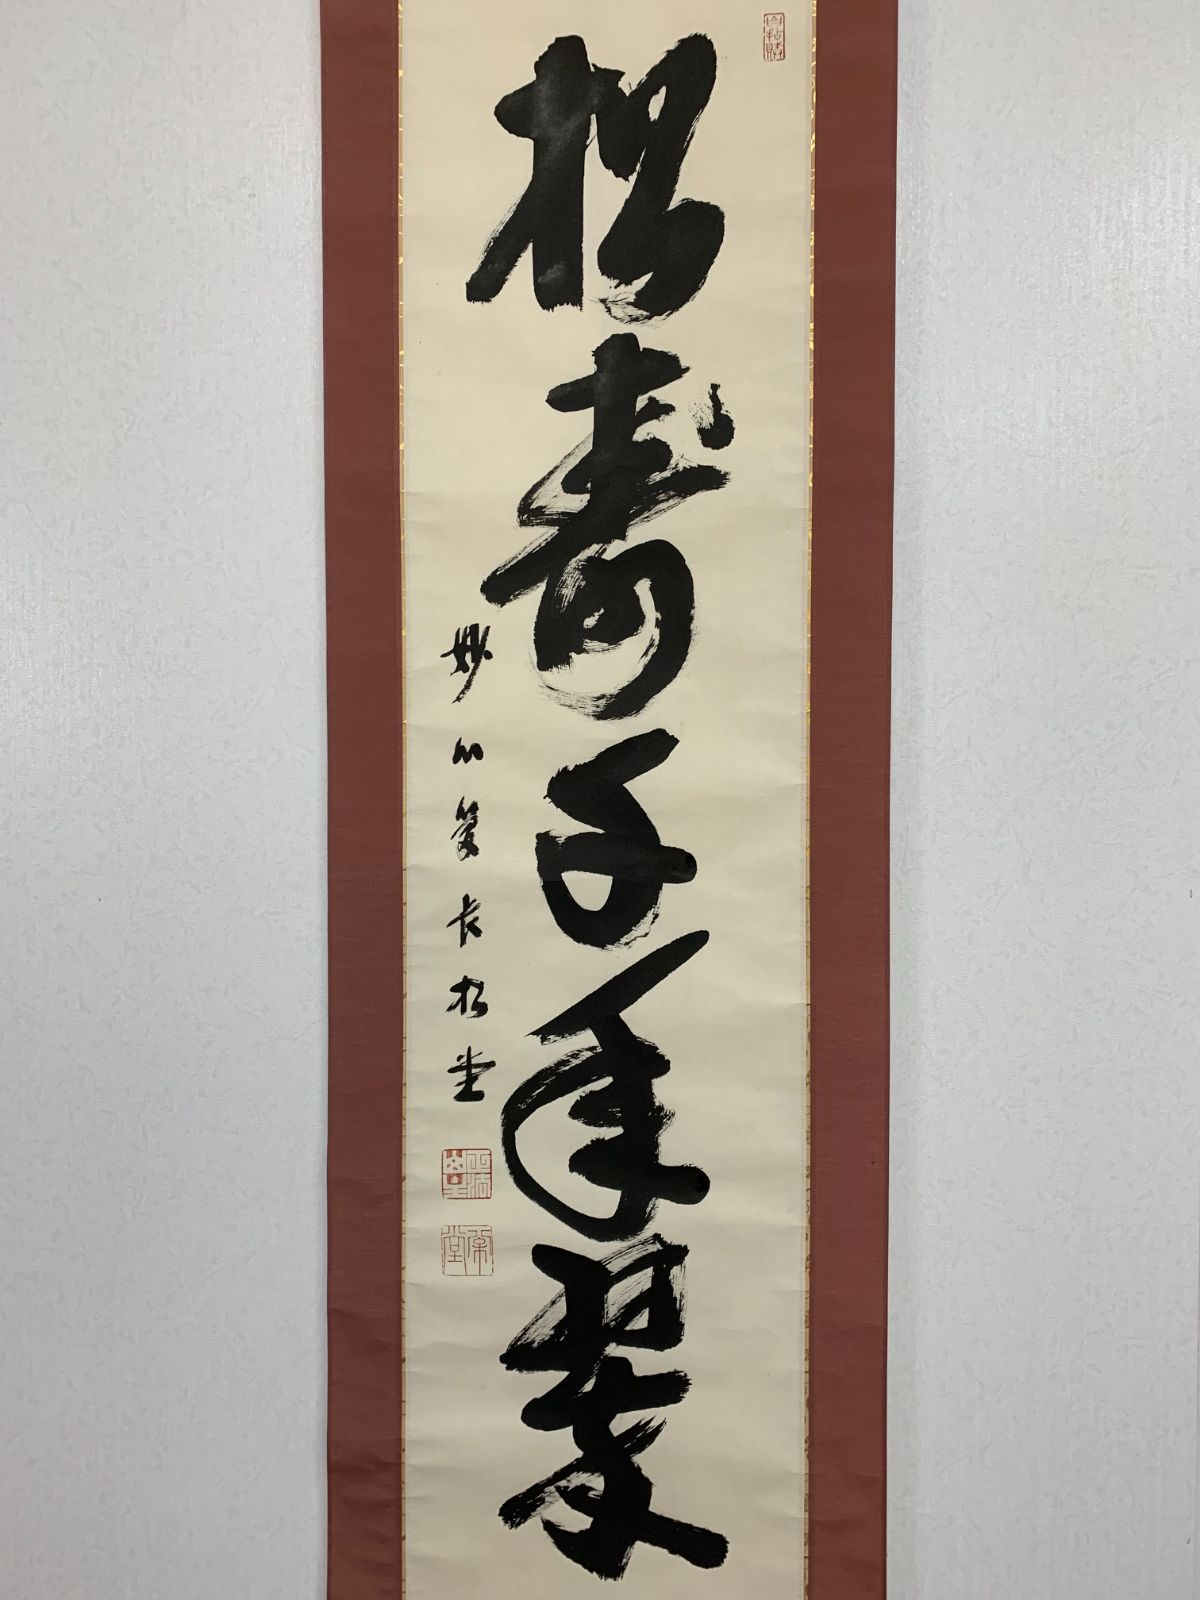 松寿千年翠
妙心管長松堂